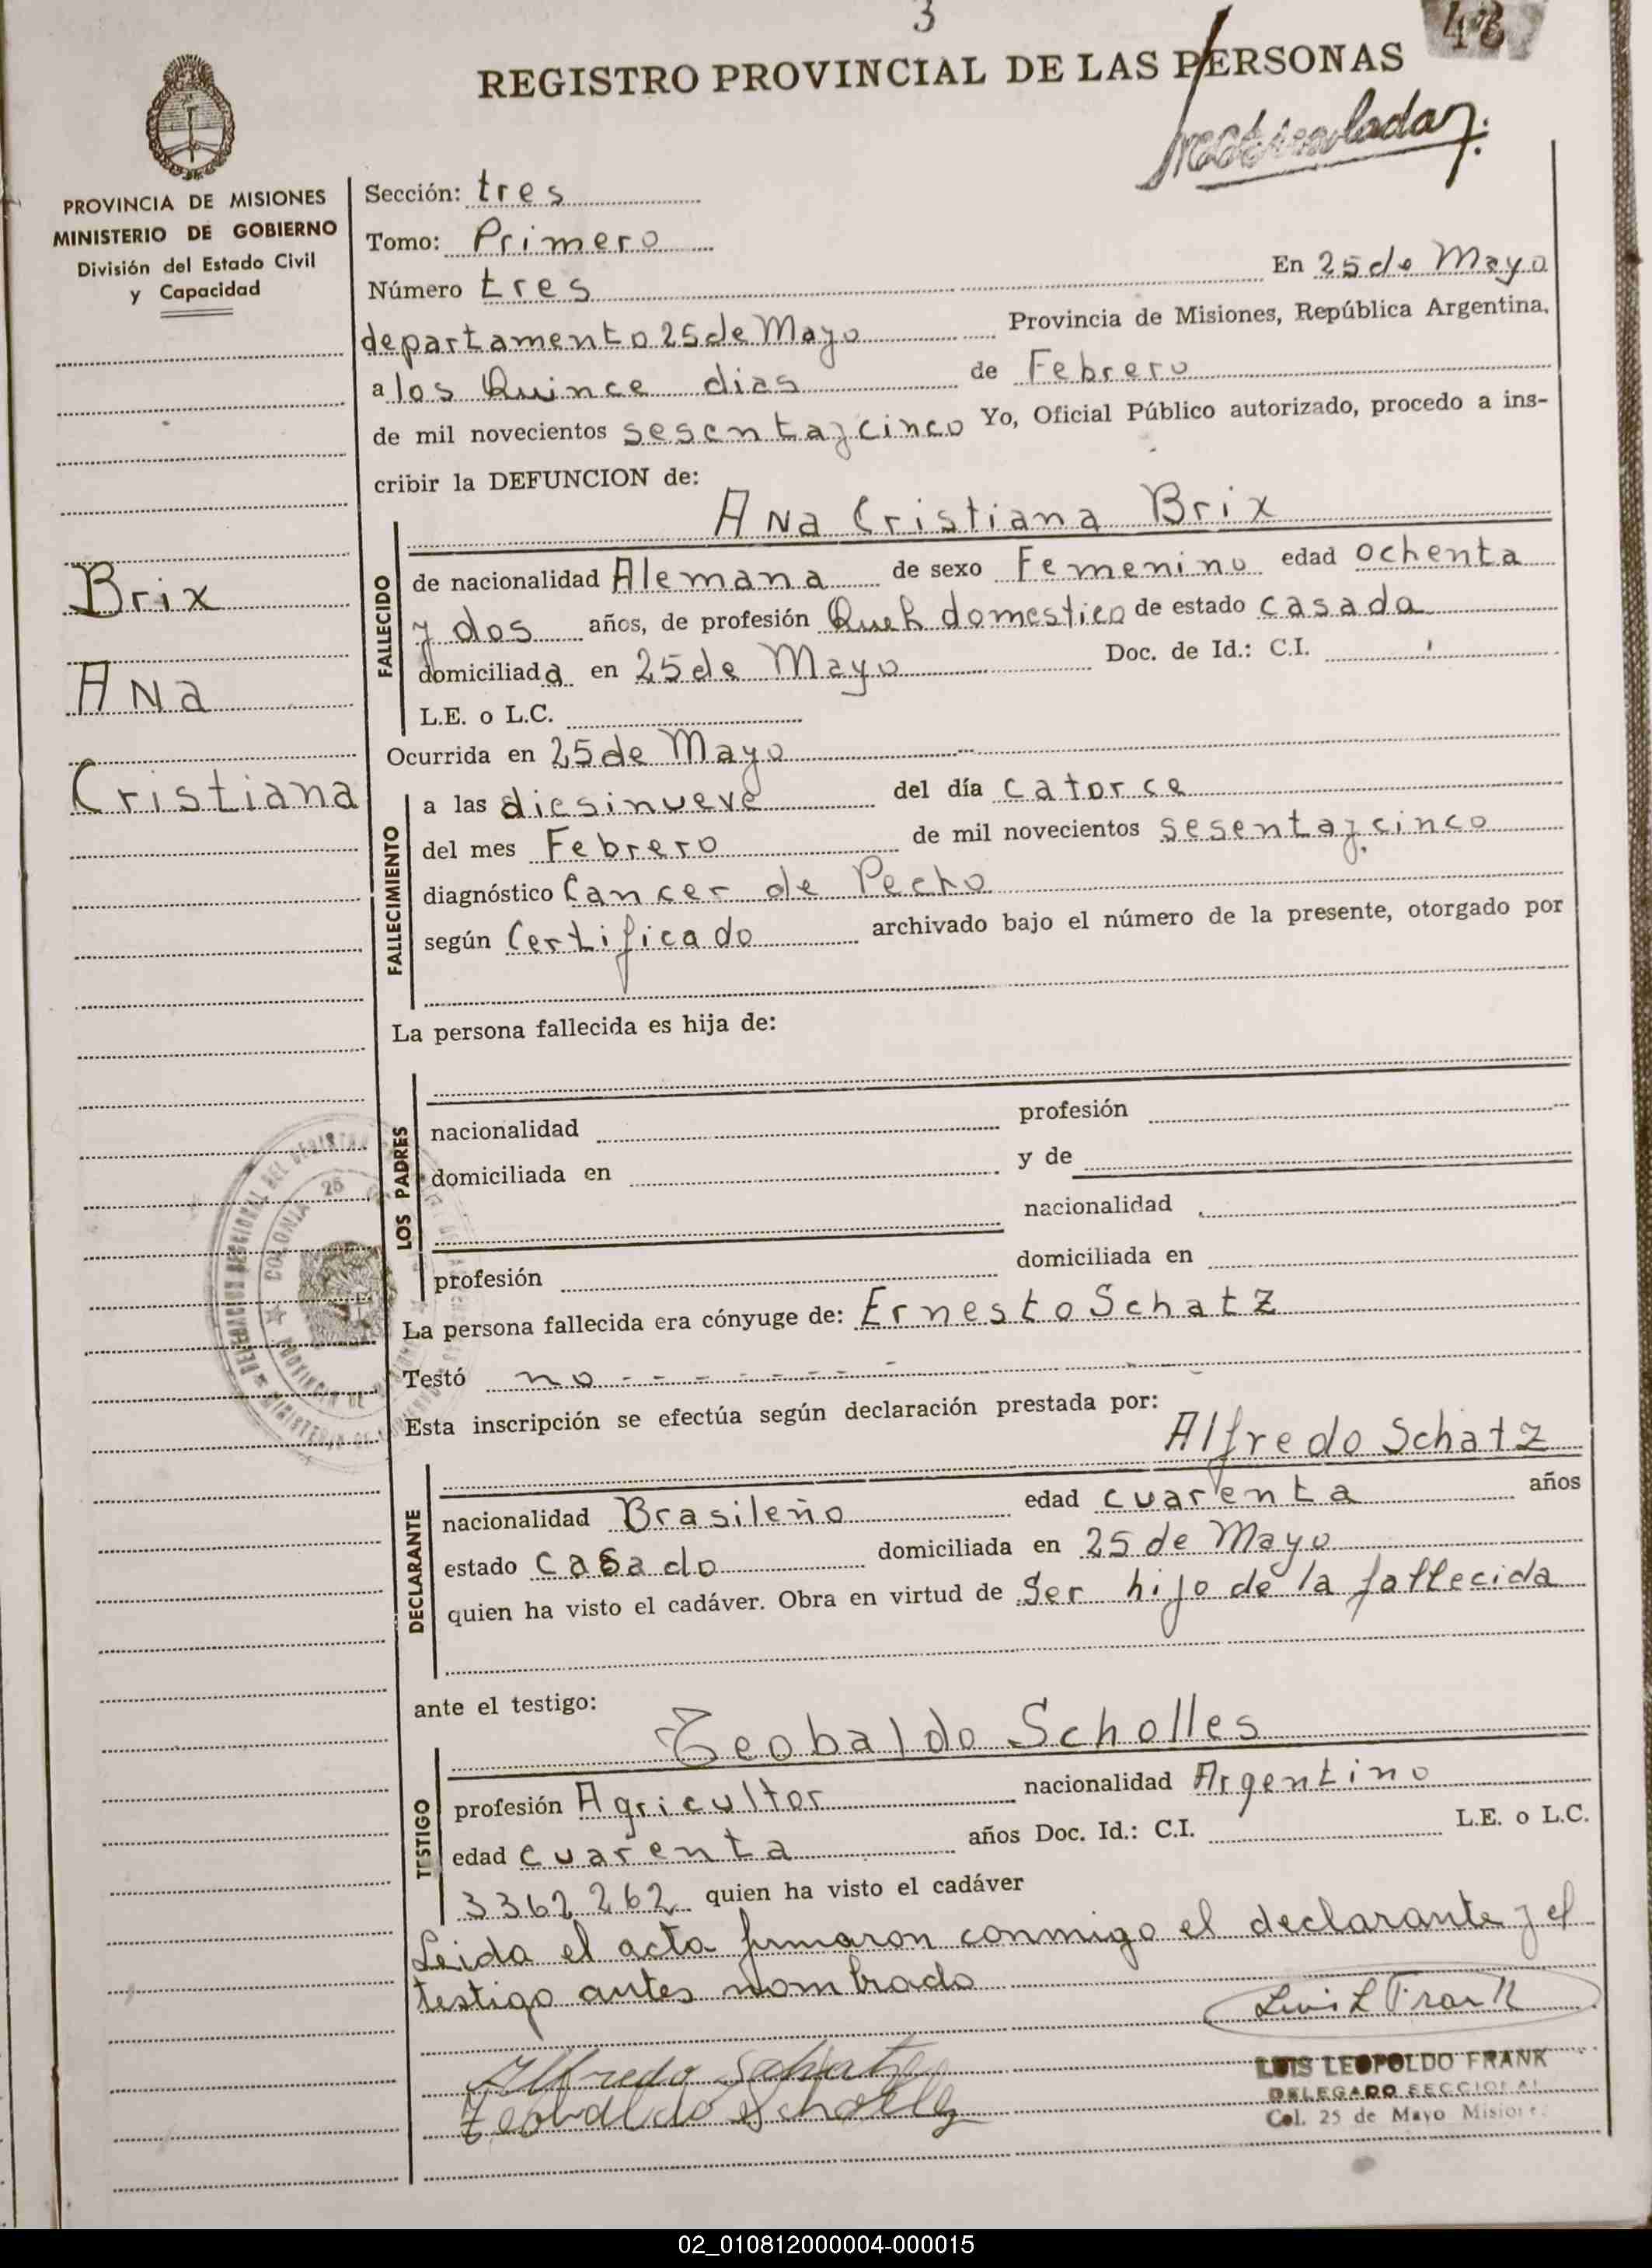 3
48
REGISTRO PROVINCIAL DE LAS PERSONAS
PROVINCIA DE MISIONES
MINISTERIO DE GOBIERNO
División del Estado Civil
y Capacidad
Brix
Ana
Cristiana
Sección: tres
Tomo: Primero
Número tres En 25 de Mayo
departamento 25 de Mayo Provincia de Misiones, República Argentina,
a los Quince dias de Febrero
de mil novecientos sesenta y cinco Yo, Oficial Público autorizado, procedo a ins-
cribir la DEFUNCION de:
Ana Cristiana Brix
FALLECIDO
de nacionalidad Alemana de sexo Femenino edad ochenta
y dos años, de profesión Queh domestico de estado casada
domiciliada en 25 de Mayo Doc. de Id.: C.I.
L.E. o L.C.
Ocurrida en 25 de Mayo
FALLECIMIENTO
a las diesinueve del día catorce
del mes Febrero de mil novecientos sesenta y cinco
diagnóstico Cancer de Pecho
según Certificado archivado bajo el número de la presente, otorgado por
La persona fallecida es hija de:
LOS PADRES
nacionalidad profesión
domiciliada en y de
nacionalidad
profesión domiciliada en
La persona fallecida era cónyuge de: Ernesto Schatz
Testó no - - - - - - - -
Esta inscripción se efectúa según declaración prestada por:
Alfredo Schatz
DECLARANTE
nacionalidad Brasileño edad cuarenta años
estado Casado domiciliada en 25 de Mayo
quien ha visto el cadáver. Obra en virtud de Ser hijo de la fallecida
ante el testigo:
Teobaldo Scholles
TESTIGO
profesión Agricultor nacionalidad Argentino
edad cuarenta años Doc. Id.: C.I. L.E. o L.C.
3362262 quien ha visto el cadáver
Leida el acta firmaron conmigo el declarante y el
testigo antes nombrado
Luis L Frank
Alfredo Schatz
Teobaldo Scholles
LUIS LEOPOLDO FRANK
DELEGADO SECCIONAL
Col. 25 de Mayo Misiones
02_010812000004-000015